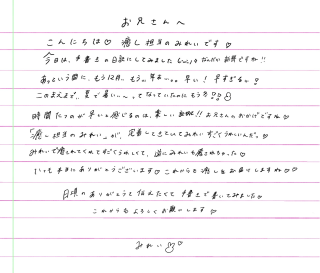 お兄さんへ
こんにちは♡ 癒し担当のみれいです♡
今日は、手書きの日記にしてみました
あっという間に、もう12月。もう、年末、、。早い! 早すぎる。!
このままで、夏で暑い、、、ってなっていたのにもう冬??
時間たつのが早いと感じるのは、楽しい証拠!! お兄さんのおかげですね♡
「癒し担当のみれい」が、定着してきていてみれいすごくうれしいんだ♡。
みれいで癒されてくれてすごくうれしくて、逆にみれいも癒されちゃった♡
いつも本当にありがとうございます♡これからも癒しをお届けしますね♡
日頃のありがとうを伝えたくて手書きで書いてみました♡
これからもよろしくお願いします
みれい♡